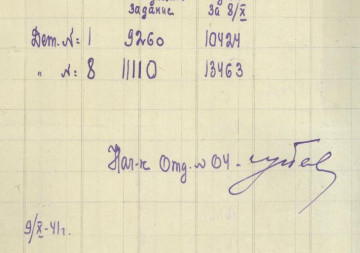 задание за 8/X
Дет. №: 1 9260 10424
" №: 8 11110 13463
Нач-к Отд. № 04 -
9/X-41г.